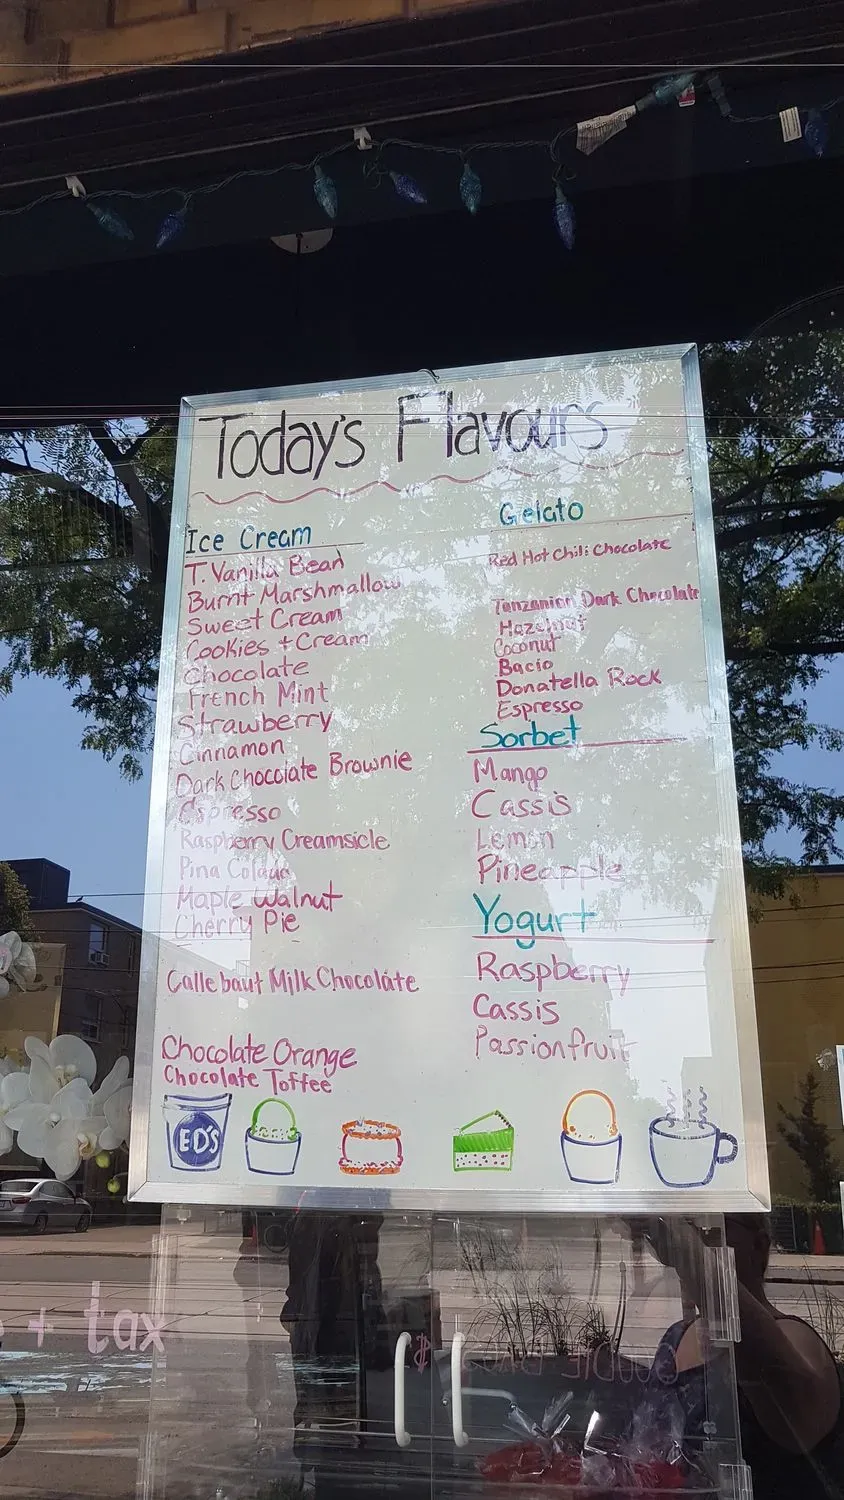 Today's Flavours
Ice Cream
T. Vanilla Bean
Burnt Marshmallow
Sweet Cream
Cookies + Cream
Chocolate
French Mint
Strawberry
Cinnamon
Dark Chocolate Brownie
Espresso
Raspberry Creamsicle
Pina Colada
Maple Walnut
Cherry Pie
Callebaut Milk Chocolate
Chocolate Orange
Chocolate Toffee
Gelato
Red Hot Chili Chocolate
Tanzanian Dark Chocolate
Hazelnut
Coconut
Bacio
Donatella Rock
Espresso
Sorbet
Mango
Cassis
Lemon
Pineapple
Yogurt
Raspberry
Cassis
Passionfruit
ED'S
+ tax